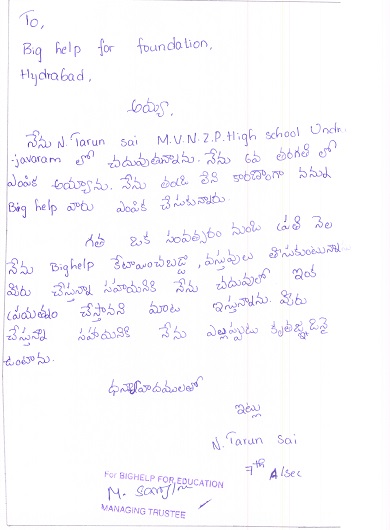 To,
Big help for foundation,
Hydrabad,
అయ్యా,
నేను N. Tarun sai M.V.N.Z.P.High school Undr-
-javaram లో చదువుతున్నాను. నేను 6వ తరగతి లో
ఎంపిక అయ్యాను. నేను తండ్రి లేని కారణంగా నన్ను
Big help వారు ఎంపిక చేసుకున్నారు.
గత ఒక సంవత్సరం నుండి ప్రతి నెల
నేను Bighelp కేటాయించబడ్డ, వస్తువులు తీసుకుంటున్నా
మీరు చేస్తున్న సహాయనికి నేను చదువులో ఇంక
ప్రయత్నం చేస్తానని మాట ఇస్తున్నాను. మీరు
చేస్తున్న సహాయనికి నేను ఎల్లప్పుడు కృతజ్ఞుడినై
ఉంటాను.
ధన్యవాదములతో
ఇట్లు
N. Tarun sai
7th A/sec
For BIGHELP FOR EDUCATION
MANAGING TRUSTEE